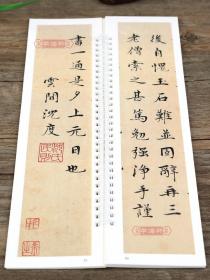 後自愧玉石難並固辭再三
老僧索之甚篤勉強淨手謹
書一通是夕上元日也
雲間沈度